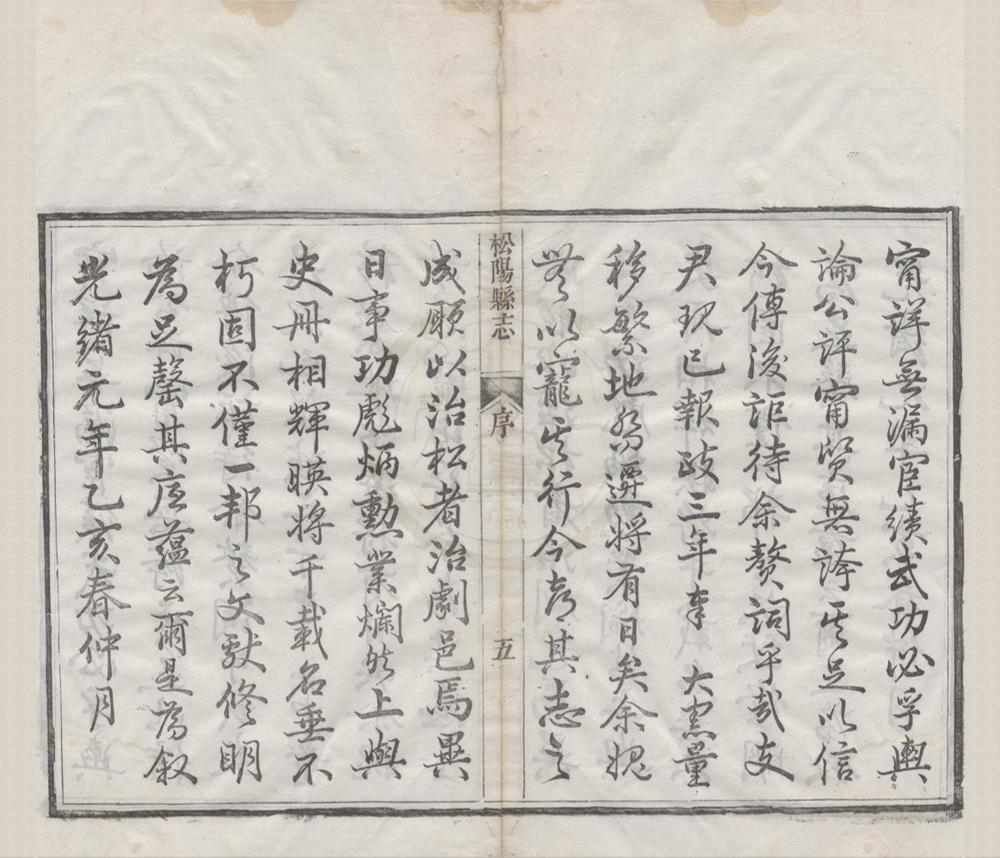 甯詳無漏宦績武功必孚輿
論公評甯贸無誇其足以信
今傳後詎待余贅詞乎哉支
君現已報政三年奉 大憲量
移繁地膺遷將有日矣余愧
無以寵其行今喜其志之
松陽縣志 序 五
成願以治松者治劇邑焉異
日事功彪炳勳業爛然上與
史冊相輝暎將千載名垂不
朽固不僅一邦之文獻修明
為足罄其底蘊云爾是為叙
光緒元年乙亥春仲月